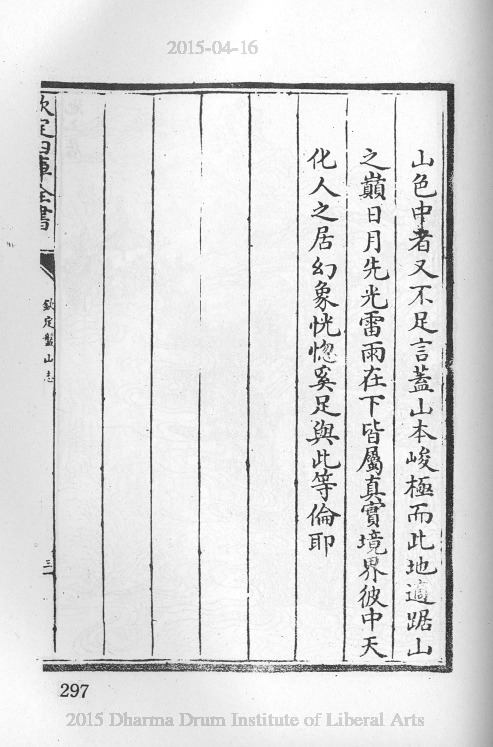 2015-04-16
山色中者又不足言蓋山本峻極而此地適踞山
之巔日月先光雷雨在下皆屬真實境界彼中天
化人之居幻象恍惚奚足與此等倫耶
欽定四庫全書
欽定盤山志
三
297
2015 Dharma Drum Institute of Liberal Arts